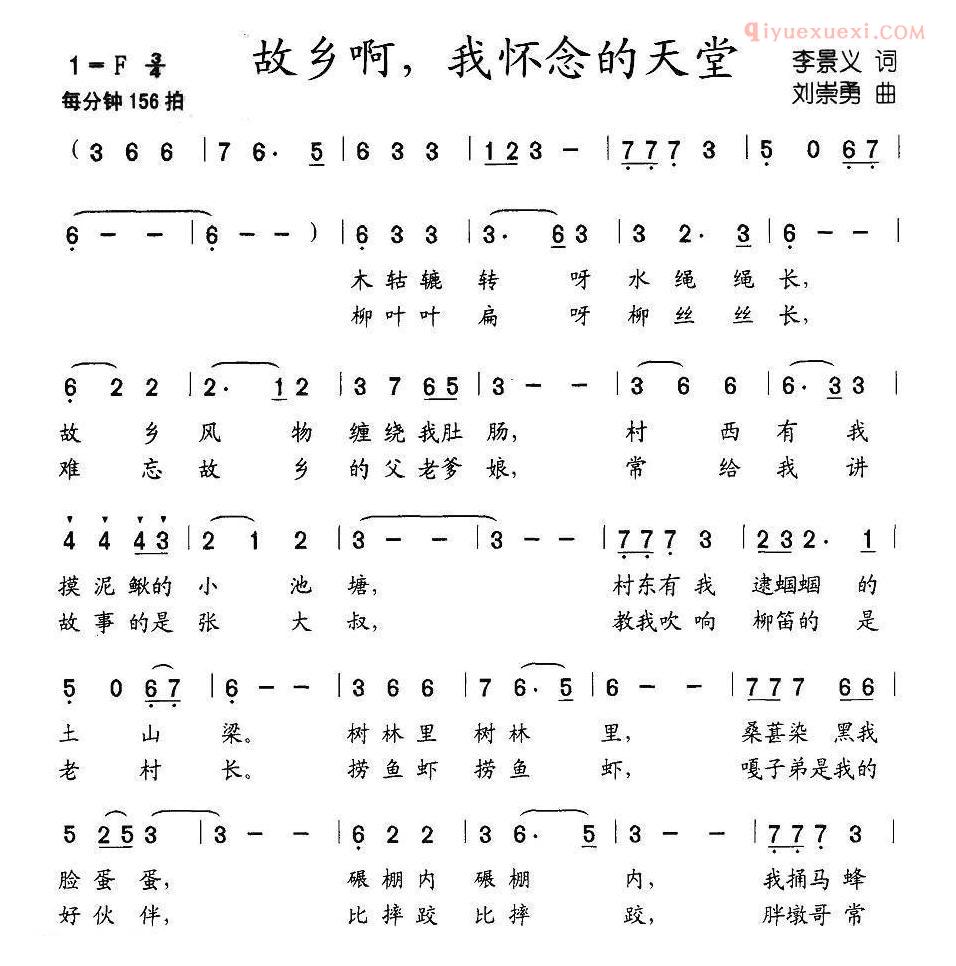 Qiyuexuexi.com
1=F 3/4
故乡啊，我怀念的天堂
李景义 词
每分钟156拍
刘崇勇 曲
( 3 6 6 | 7 6· 5 | 6 3 3 | 1 2 3 - | 7 7 7 3 | 5 0 6 7 |
6 - - | 6 - - ) | 6 3 3 | 3· 6 3 | 3 2· 3 | 6 - - |
木轱辘转 呀水绳绳长，
柳叶叶扁 呀柳丝丝长，
6 2 2 | 2· 1 2 | 3 7 6 5 | 3 - - | 3 6 6 | 6· 3 3 |
故乡风物缠绕我肚肠， 村西有我
难忘故乡的父老爹娘， 常给我讲
4 4 4 3 | 2 1 2 | 3 - - | 3 - - | 7 7 7 3 | 2 3 2· 1 |
摸泥鳅的小池塘， 村东有我逮蝈蝈的
故事的是张大叔， 教我吹响柳笛的是
5 0 6 7 | 6 - - | 3 6 6 | 7 6· 5 | 6 - - | 7 7 7 6 6 |
土山梁。 树林里树林里， 桑葚染黑我
老村长。 捞鱼虾捞鱼虾， 嘎子弟是我的
5 2 5 3 | 3 - - | 6 2 2 | 3 6· 5 | 3 - - | 7 7 7 3 |
脸蛋蛋， 碾棚内碾棚内， 我捅马蜂
好伙伴， 比摔跤比摔跤， 胖墩哥常